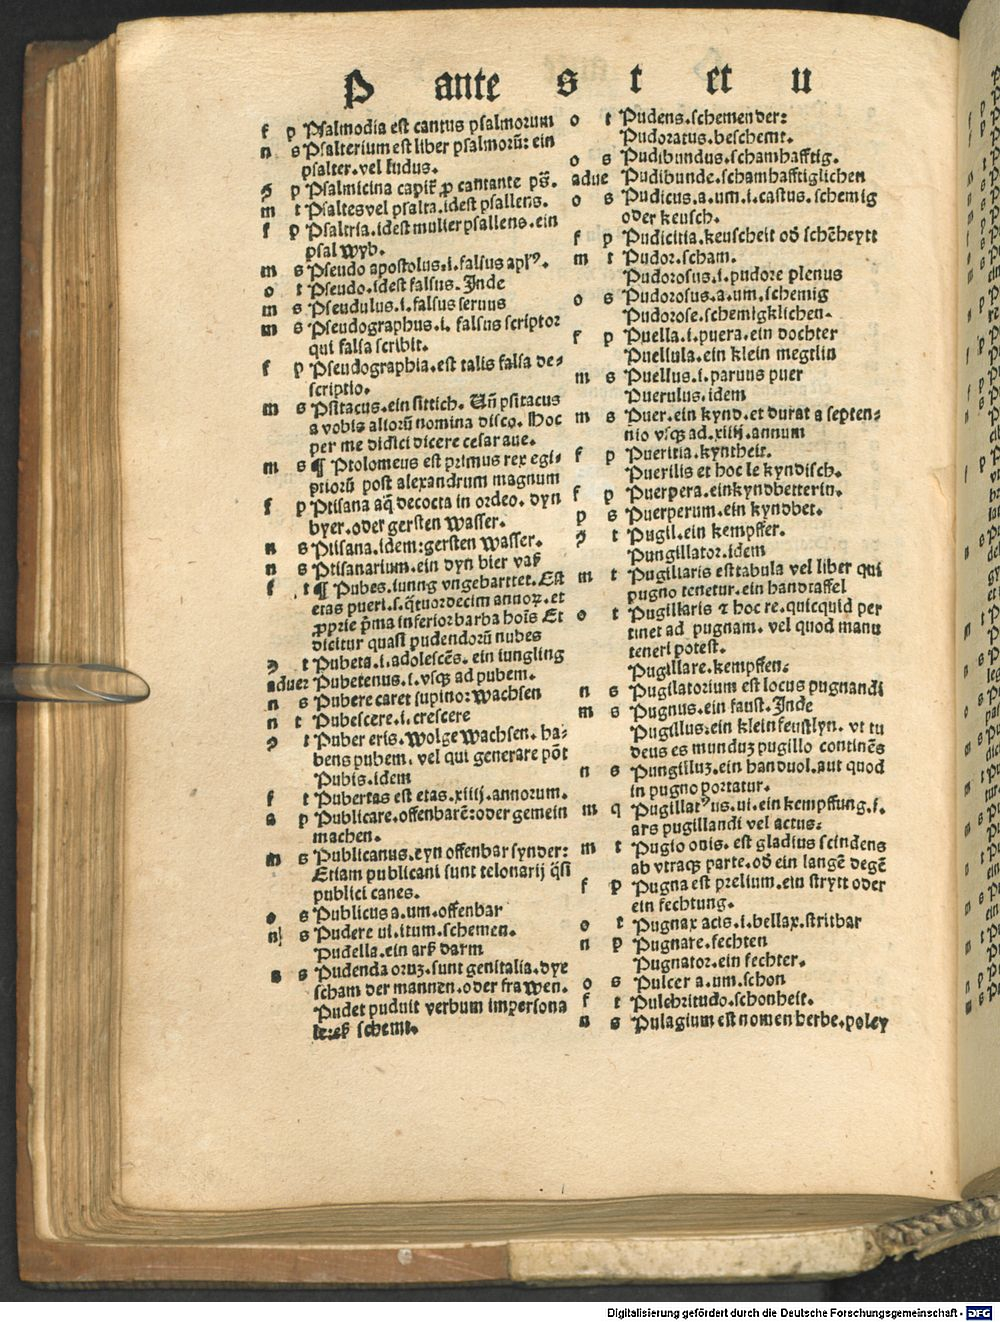 P ante s t et u
f p Psalmodia est cantus psalmorum
n s Psalterium est liber psalmorū: ein
psalter. vel ludus.
ꝯ p Psalmicina capiť ꝓ cantante pṡ.
m t Psaltes vel psalta. idest psallens.
f p Psaltria. idest mulier psallens. ein
psal wyb.
m s Pseudo apostolus. i. falsus apłꝰ.
o t Pseudo. idest falsus. Inde
m s Pseudulus. i. falsus seruus
m s Pseudographus. i. falsus scriptor
qui falsa scribit.
f p Pseudographia. est talis falsa de⸗
scriptio.
m s Psitacus. ein sittich. Uñ psitacus
a vobis aliorū nomina disco. Hoc
per me didici dicere cesar aue.
m s ¶ Ptolomeus est primus rex egi⸗
ptiorū post alexandrum magnum
f p Ptisana aq̄ decocta in ordeo. dyn
byer. oder gersten wasser.
n s Ptisana. idem: gersten wasser.
n s Ptisanarium. ein dyn bier vaß
f t ¶ Pubes. iunng vngebarttet. Est
etas pueri. s. q̄tuordecim annoꝝ. et
ꝓprie p̄ma inferior barba hoīs Et
dicitur quasi pudendorū nubes
ꝯ t Pubeta. i. adolescēs. ein iungling
aduer Pubetenus. i. vsqꝫ ad pubem.
n s Pubere caret supino: wachsen
n t Pubescere. i. crescere
ꝯ t Puber eris. wolge wachsen. ha⸗
bens pubem. vel qui generare pōt
Pubis. idem
f t Pubertas est etas. xiiij. annorum.
a p Publicare. offenbarē: oder gemein
machen.
m s Publicanus. eyn offenbar synder:
Etiam publicani sunt telonarij q̄si
publici canes.
o s Publicus a. um. offenbar
n s Pudere ui. itum. schemen.
Pudella. ein arß darm
n s Pudenda oruꝫ. sunt genitalia. dye
scham der mannen. oder frawen.
Pudet puduit verbum impersona
le: eß schemt.
o t Pudens. schemender:
Pudoratus. beschemt.
o s Pudibundus. schamhafftig.
adue Pudibunde. schamhafftiglichen
o s Pudicus. a. um. i. castus. schemig
oder keusch.
f p Pudicitia. keuscheit od̄ schēheytt
m t Pudor. scham.
Pudorosus. i. pudore plenus
o s Pudorosus. a. um. schemig
Pudorose. schemigklichen.
f p Puella. i. puera. ein dochter
Puellula. ein klein megtlin
m s Puellus. i. paruus puer
Puerulus. idem
m s Puer. ein kynd. et durat a septen⸗
nio vsqꝫ ad. xiiij. annum
f p Pueritia. kyntheit.
Puerilis et hoc le kyndisch.
f p Puerpera. ein kyndbetterin.
p s Puerperum. ein kyndbet.
ꝯ t Pugil. ein kempffer.
Pungillator. idem
m t Pugillaris est tabula vel liber qui
pugno tenetur. ein handtaffel
o t Pugillaris ⁊ hoc re. quicquid per
tinet ad pugnam. vel quod manu
teneri potest.
Pugillare. kempffen:
n s Pugilatorium est locus pugnandi
m s Pugnus. ein faust. Inde
Pugillus: ein klein feustlyn. vt tu
deus es munduꝫ pugillo continēs
n s Pungilluꝫ. ein handuol. aut quod
in pugno portatur.
m q Pugillatꝰ us. ui. ein kempffung. s.
ars pugillandi vel actus:
m t Pugio onis. est gladius scindens
ab vtraqꝫ parte. od̄ ein langē degē
f p Pugna est prelium. ein strytt oder
ein fechtung.
o t Pugnax acis. i. bellax. stritbar
n p Pugnare. fechten
Pugnator. ein fechter.
o s Pulcer a. um. schon
f t Pulchritudo. schonheit.
n s Pulagium est nomen herbe. poley
Digitalisierung gefördert durch die Deutsche Forschungsgemeinschaft - DFG